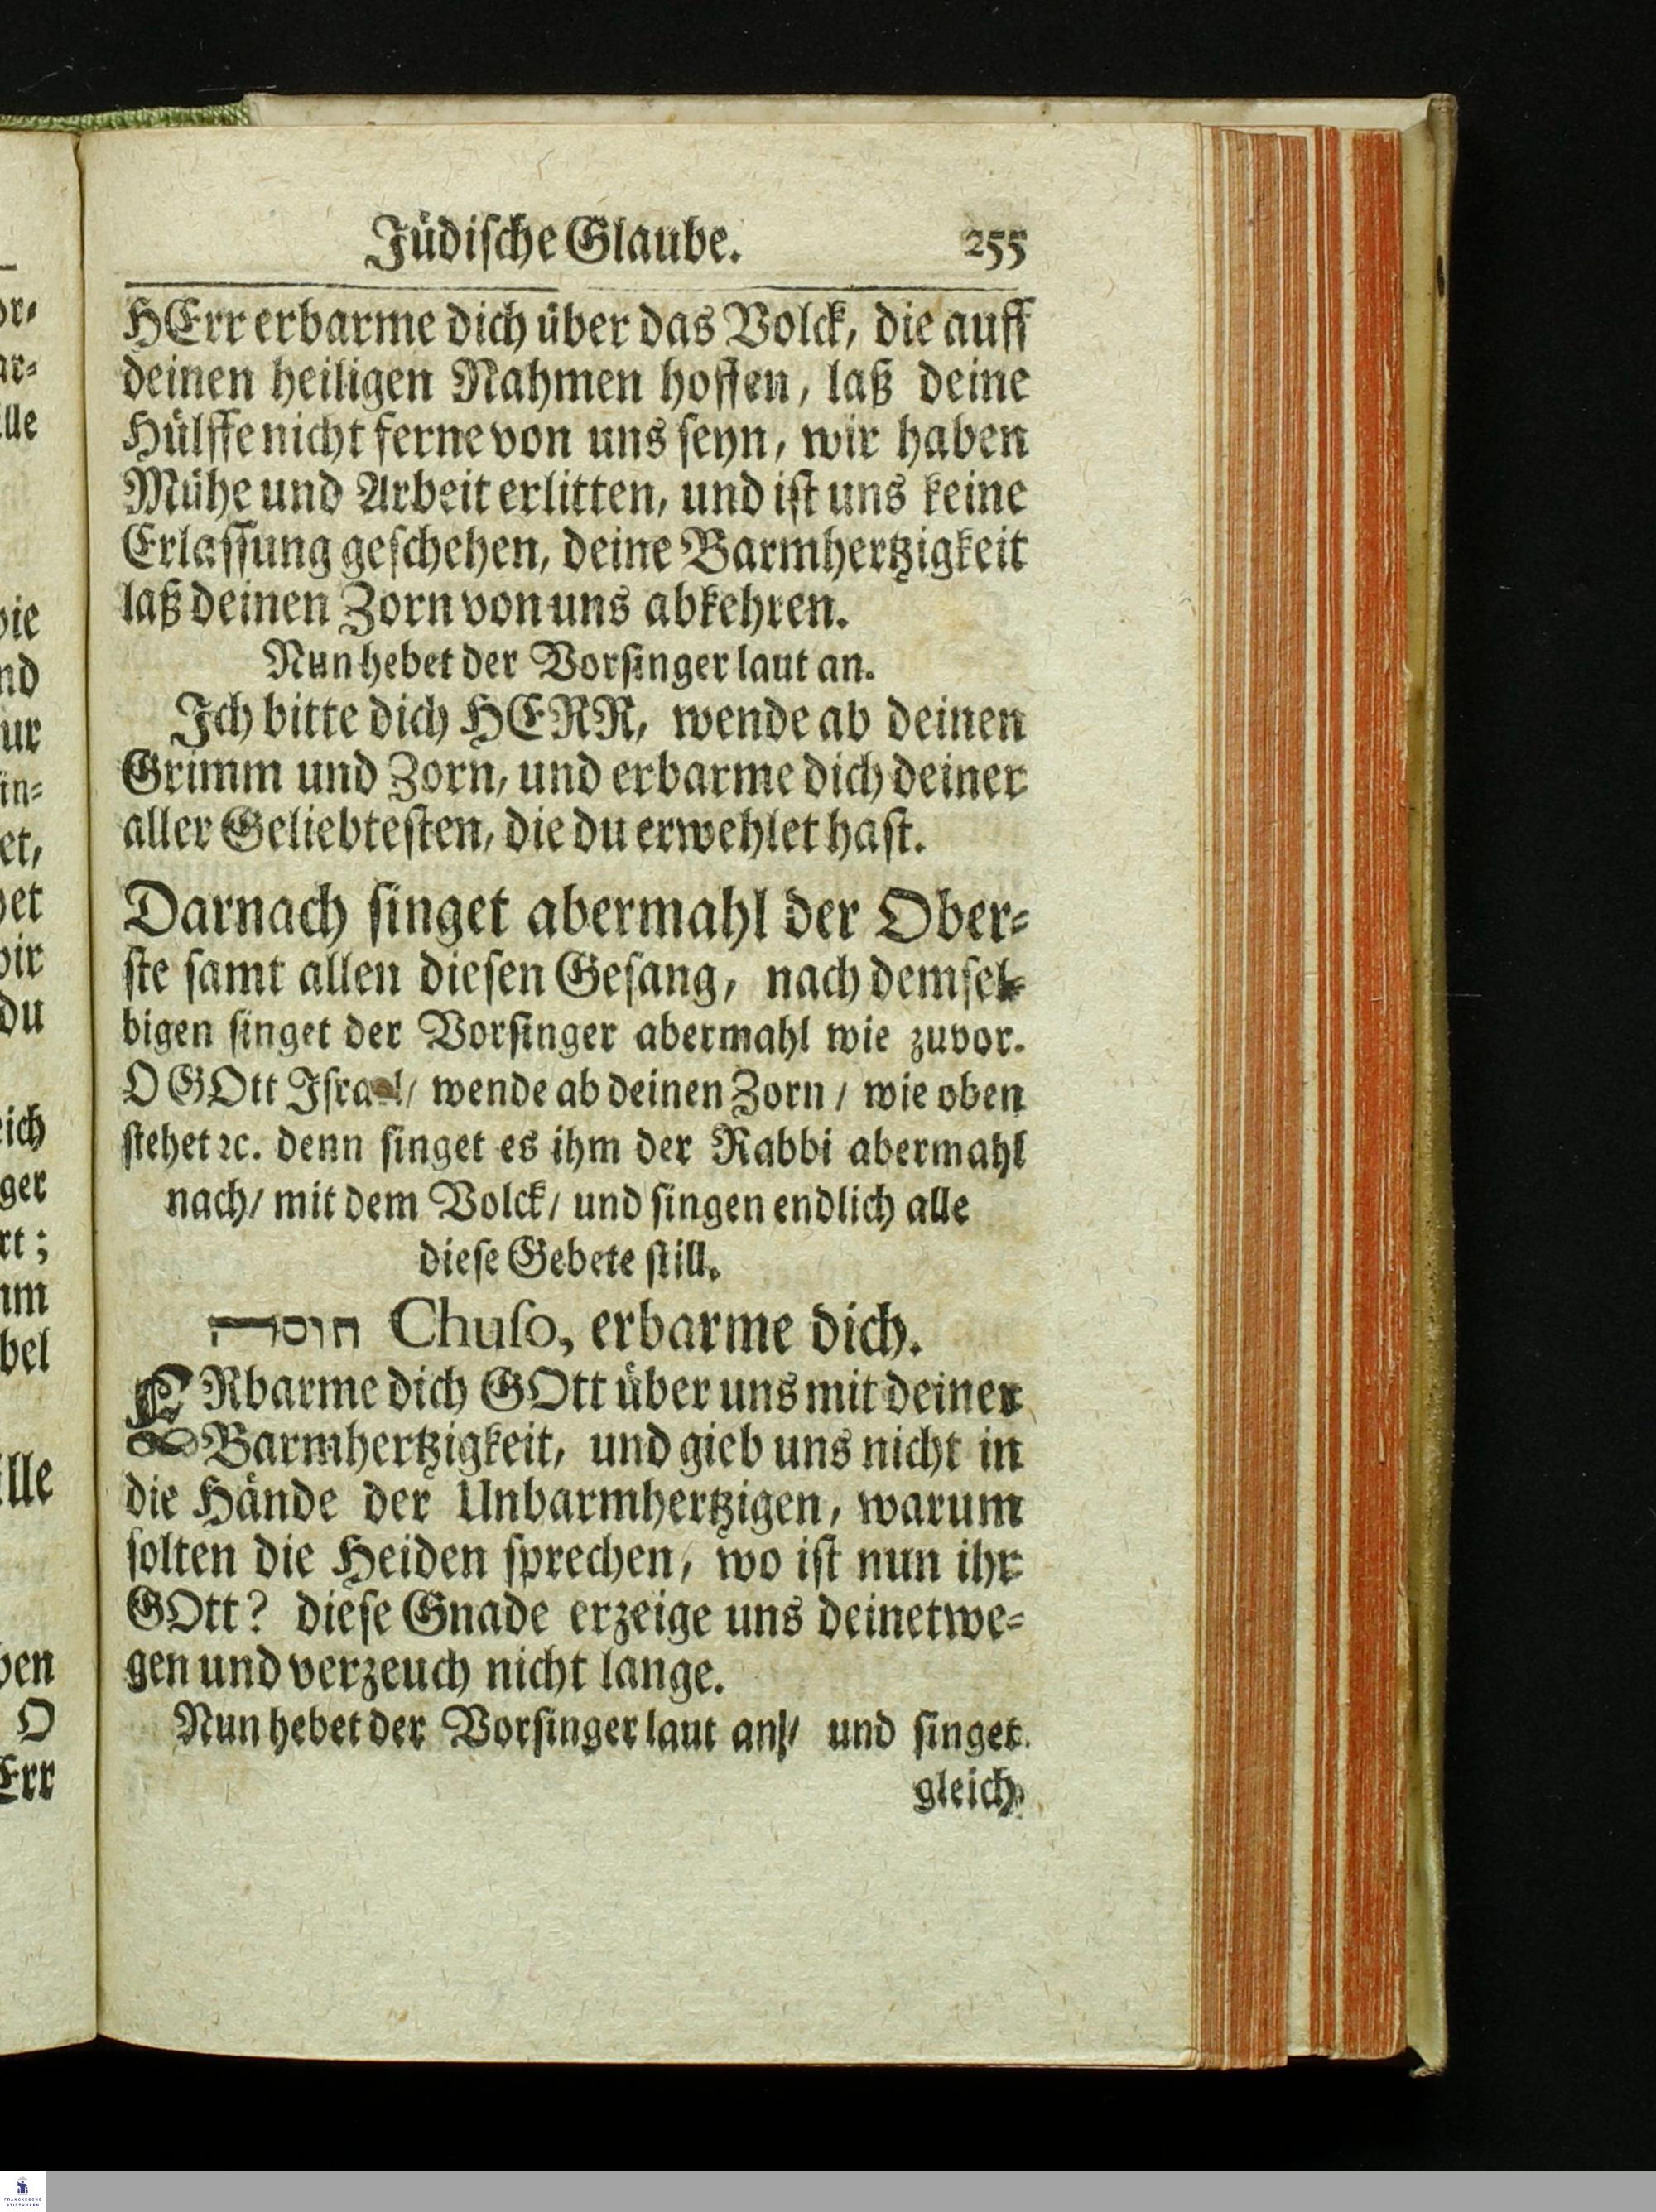 Jüdische Glaube. 255
HErr erbarme dich über das Volck, die auff
deinen heiligen Nahmen hoffen, laß deine
Hülffe nicht ferne von uns seyn, wir haben
Mühe und Arbeit erlitten, und ist uns keine
Erlassung geschehen, deine Barmhertzigkeit
laß deinen Zorn von uns abkehren.
Nun hebet der Vorsinger laut an.
Ich bitte dich HERR, wende ab deinen
Grimm und Zorn, und erbarme dich deiner
aller Geliebtesten, die du erwehlet hast.
Darnach singet abermahl der Ober-
ste samt allen diesen Gesang, nach demsel-
bigen singet der Vorsinger abermahl wie zuvor.
O GOtt Israel/ wende ab deinen Zorn / wie oben
stehet ꝛc. denn singet es ihm der Rabbi abermahl
nach/ mit dem Volck/ und singen endlich alle
diese Gebete still.
חוסה Chuso, erbarme dich.
ERbarme dich GOtt über uns mit deiner
Barmhertzigkeit, und gieb uns nicht in
die Hände der Unbarmhertzigen, warum
solten die Heiden sprechen, wo ist nun ihr
GOtt? diese Gnade erzeige uns deinetwe-
gen und verzeuch nicht lange.
Nun hebet der Vorsinger laut an/ und singet
gleich